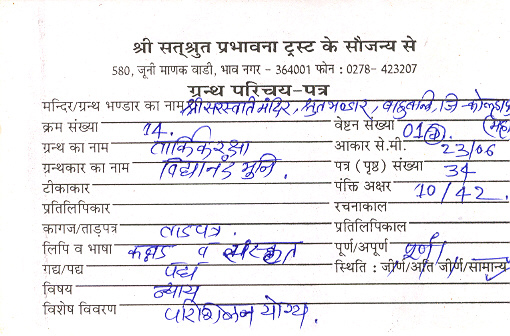 श्री सत्श्रुत प्रभावना ट्रस्ट के सौजन्य से
580, जूनी माणक वाडी, भाव नगर - 364001 फोन : 0278- 423207
ग्रन्थ परिचय-पत्र
मन्दिर/ग्रन्थ भण्डार का नाम श्री सरस्वती मंदिर, श्रुतभण्डार, बाहुबलि, जि-कोल्हापुर
क्रम संख्या 14. वेष्टन संख्या 01
ग्रन्थ का नाम तार्किकरक्षा आकार से.मी. 23/06
ग्रन्थकार का नाम विद्यानंद मुनि. पत्र ( पृष्ठ ) संख्या 34
टीकाकार पंक्ति अक्षर 10/42.
प्रतिलिपिकार रचनाकाल
कागज/ताड़पत्र ताडपत्र. प्रतिलिपिकाल
लिपि व भाषा कन्नड व संस्कृत पूर्ण/अपूर्ण पूर्ण
गद्य/पद्य पद्य स्थिति : जीर्ण/अति जीर्ण/सामान्य
विषय न्याय
विशेष विवरण परिशिलन योग्य.